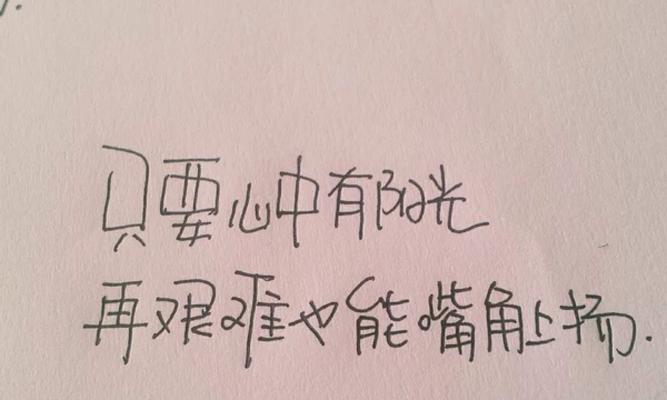 只要心中有阳光
再艰难也能嘴角上扬.